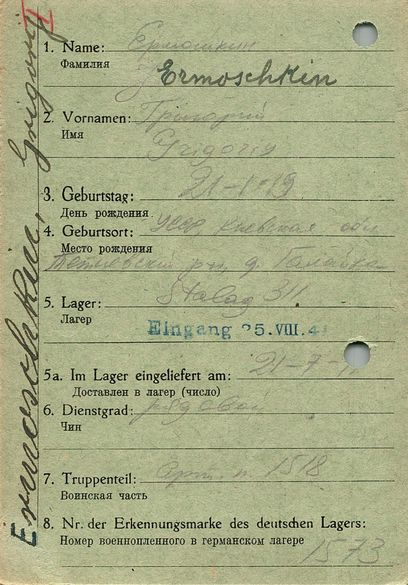 Ermoschkin, Grigorij
1. Name: Ермошкин
Фамилия
Ermoschkin
2. Vornamen: Григорий
Имя
Grigorij
3. Geburtstag: 21-1-19
День рождения
4. Geburtsort: УССР, Киевская обл
Место рождения
р-н, д. Галайки
5. Lager: Stalag 311
Лагер
Eingang 25.VIII.41
5a. Im Lager eingeliefert am: 21-7-
Доставлен в лагер (число)
6. Dienstgrad: рядовой
Чин
7. Truppenteil: арт. п. 1518
Воинская часть
8. Nr. der Erkennungsmarke des deutschen Lagers:
Номер военнопленного в германском лагере
1573